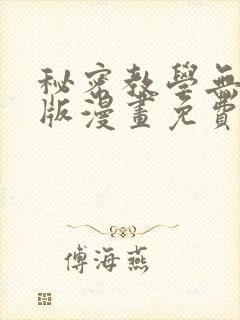 秘密教學無
版漫畫免費
傅海燕